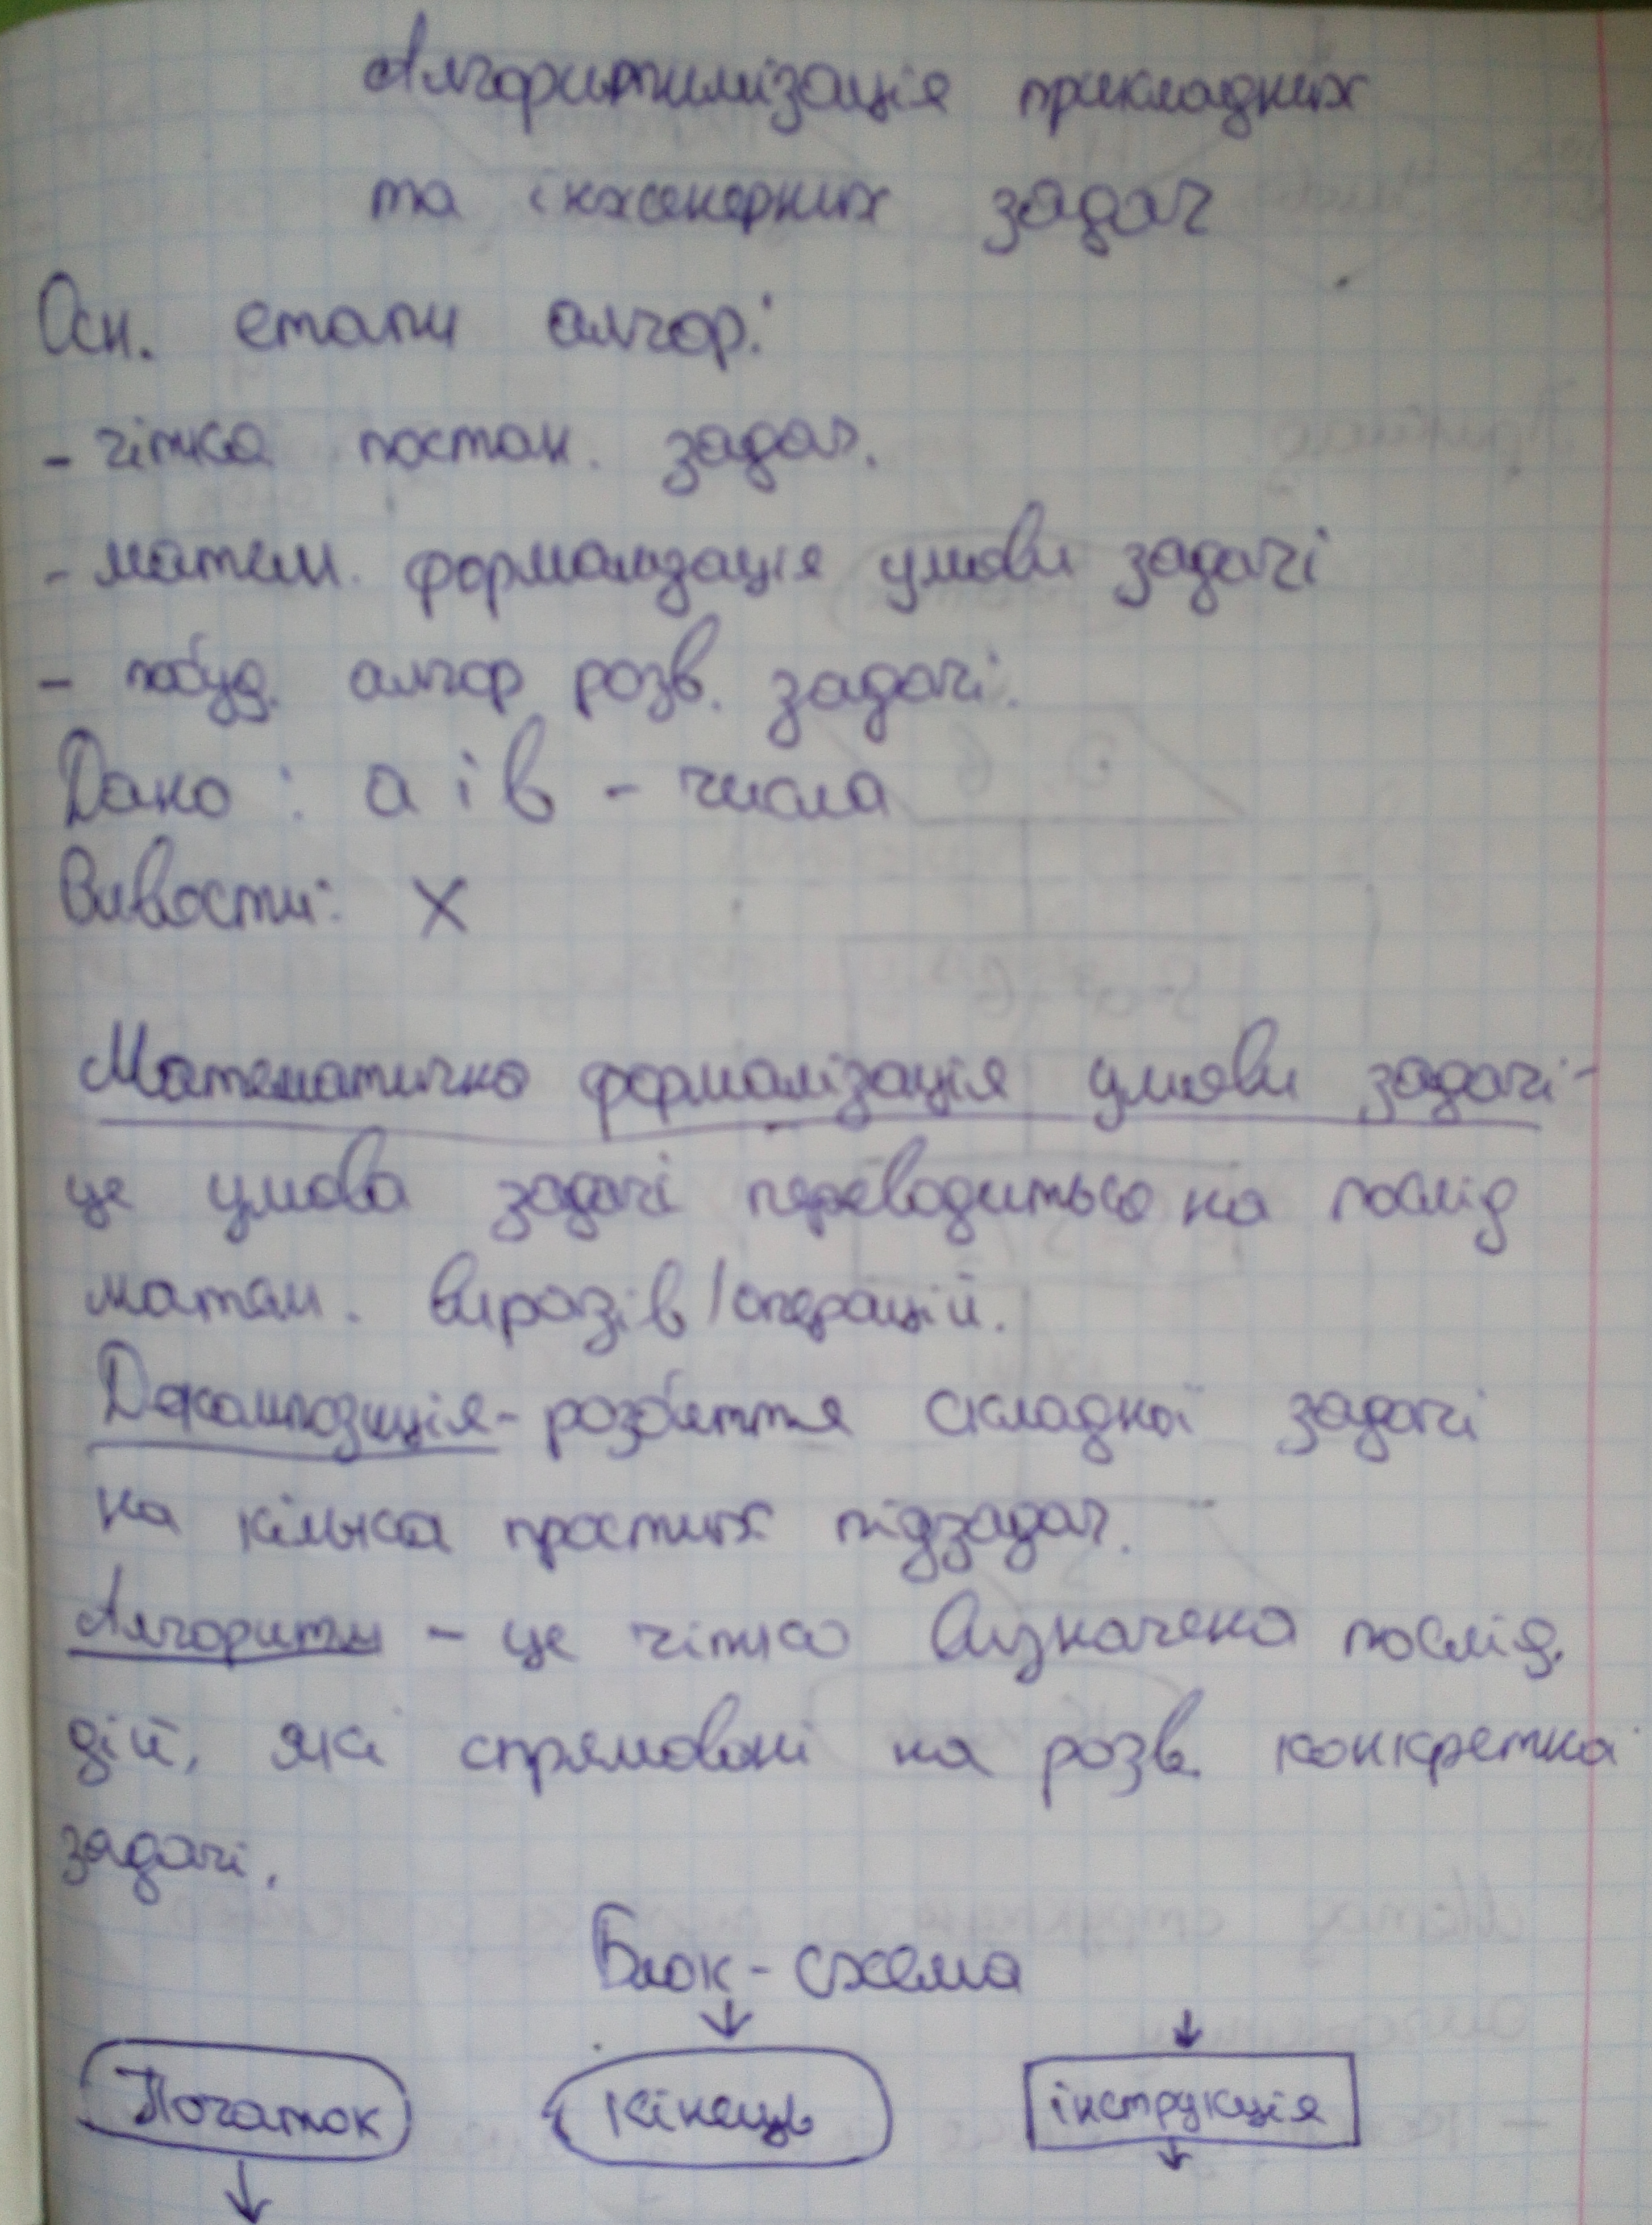 Алгоритмізація прикладних
та інженерних задач
Осн. етапи алгор.:
- чітка постан. задач.
- матем. формалізація умови задачі
- побуд. алгор розв. задачі.
Дано: a і b - числа
Вивести: x
Математична формалізація умови задачі -
це умова задачі переводиться на послід
матем. виразів/операцій.
Декомпозиція - розбиття складної задачі
на кілька простих підзадач.
Алгоритм - це чітко визначена послід.
дій, які спрямовані на розв. конкретна
задачі.
Блок-схема
Початок Кінець інструкція